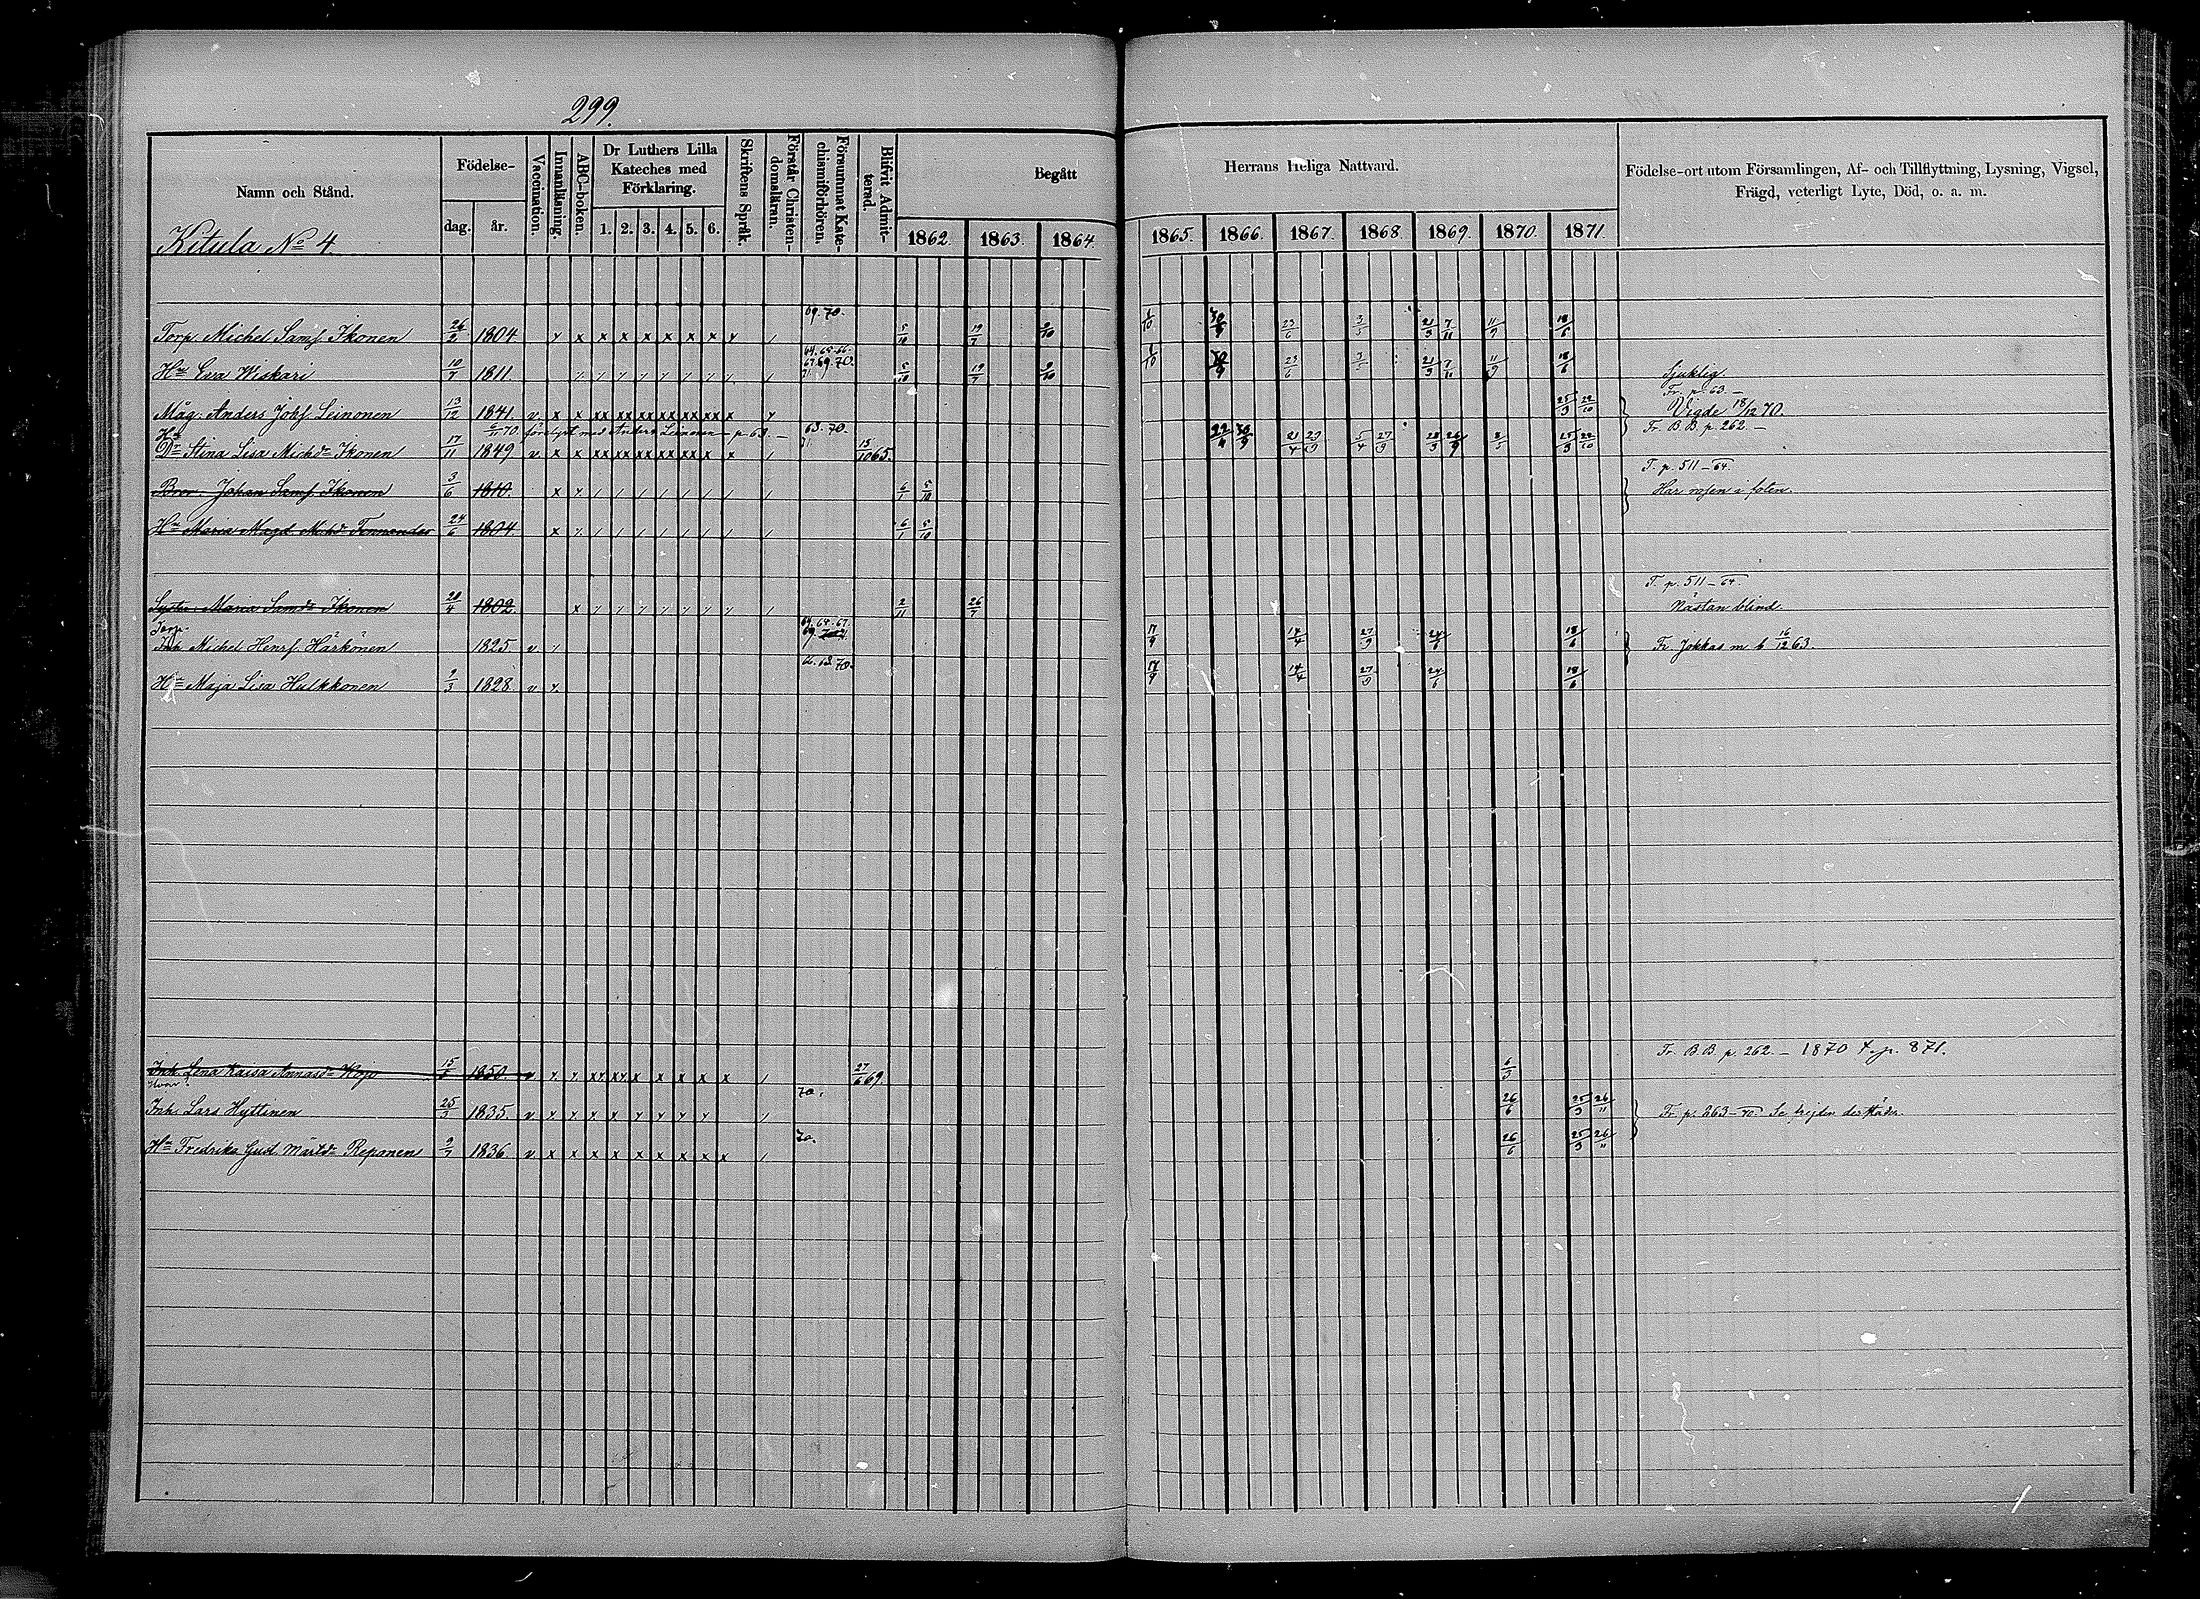 299.
Namn och Stånd.
Födelse-
dag. år.
Vaccination.
Innanläsning.
ABC-boken.
Dr Luthers Lilla Kateches med Förklaring.
1. 2. 3. 4. 5. 6.
Skriftens Språk.
Förstår Christen-domsläran.
Försummat Kate-chismiförhören.
Blifvit Admit-terad.
Begått
Herrans Heliga Nattvard.
Födelse-ort utom Församlingen, Af- och Tillflyttning, Lysning, Vigsel,
Frägd, veterligt Lyte, Död, o. a. m.
1862. 1863. 1864. 1865. 1866. 1867. 1868. 1869. 1870. 1871
Kitula No 4.
69. 70.
Torp. Michel Samf. Ikonen 26/2 1804 5/10 19/7 2/10 1/10 30/9 23/6 3/5 21/3 7/11 11/9 18/6
64. 65. 66. 67. 69. 70. 71
Hu Eva Wiskari 10/7 1811. 5/10 19/7 2/10 1/10 30/9 23/6 3/5 21/3 7/11 11/9 18/6 Sjuklig.
Fr. p. 63. —
Måg. Anders Johf. Leinonen 13/12 1841. v x x xx xx xx xx xx xx x 25/3 22/10 Vigde 18/12 70.
70 förlyst med Anders Leinonen p. 63. — 63. 70. 71 Fr. B B. p. 262. —
Hu
Dr Stina Lisa Michdr Ikonen 17/11 1849 v x x xx xx xx xx xx x x 15/10 65. 25/3 22/10
T. p. 511 — 64.
Bror. Johan Samf. Ikonen 3/6 1810. 6/1 5/10 Har rosen i foten.
Hu Maria Magd. Michdr 24/6 1804. 6/1 5/10
T. p. 511 — 64.
Syster. Maria Samdr Ikonen 28/4 1802. 2/11 26/7 Nästan blind.
Torp.
Inh. Michel Henrf. Härkönen 1825 v 17/9 14/4 27/9 24/6 18/6 Fr. Jokkas m b 16/12 63.
68. 70.
Hu Maja Lisa Hulkkonen 2/3 1828 v 17/9 14/4 27/9 24/6 18/6
Fr. B B. p. 262. — 1870 T. p. 871.
Inh. Lena Kaisa Annasdr 1850. 27/6 69. 6/3
70.
Inh. Lars Hyttinen 25/3 1835. 26/6 25/3 26/11 Fr. p. 263 — 70
70.
Hu Fredrika Gust. Märtdr Reponen 9/7 1836 v x x x x x x x x x 26/6 25/3 26/11